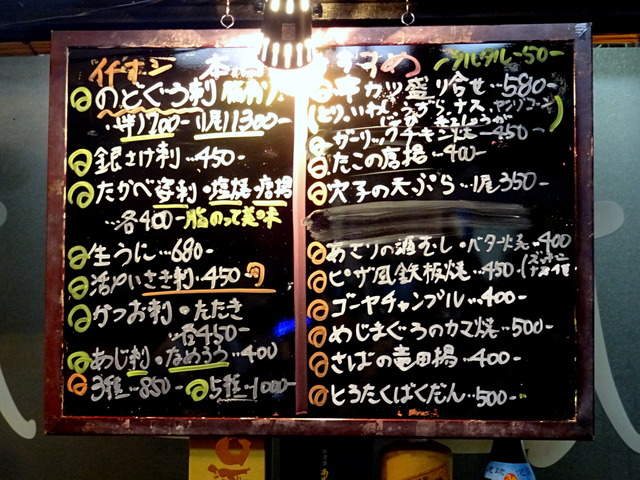 イチオシ 本
すすめ
タルタル-50-
のどぐろ刺
・・・半700- 1尾1300-
銀さけ刺・・・450-
たかべ姿刺・塩焼・唐揚
・・・各400- 脂のって美味
生うに・・・680-
活〆いさき刺・450-
かつお刺・たたき
・・・各450-
あじ刺・なめろう・・・400
3種・・・850- 5種・1000-
串カツ盛り合せ・・・580-
ガーリックチキン焼・・・450-
たこの唐揚・・・400-
穴子の天ぷら・・1尾350-
あさりの酒むし・バター焼・400
ピザ風鉄板焼・・・450-
ゴーヤチャンプル・・・400-
めじまぐろのカマ焼・・500-
さばの竜田揚・・・400-
とろたくばくだん・・・500-